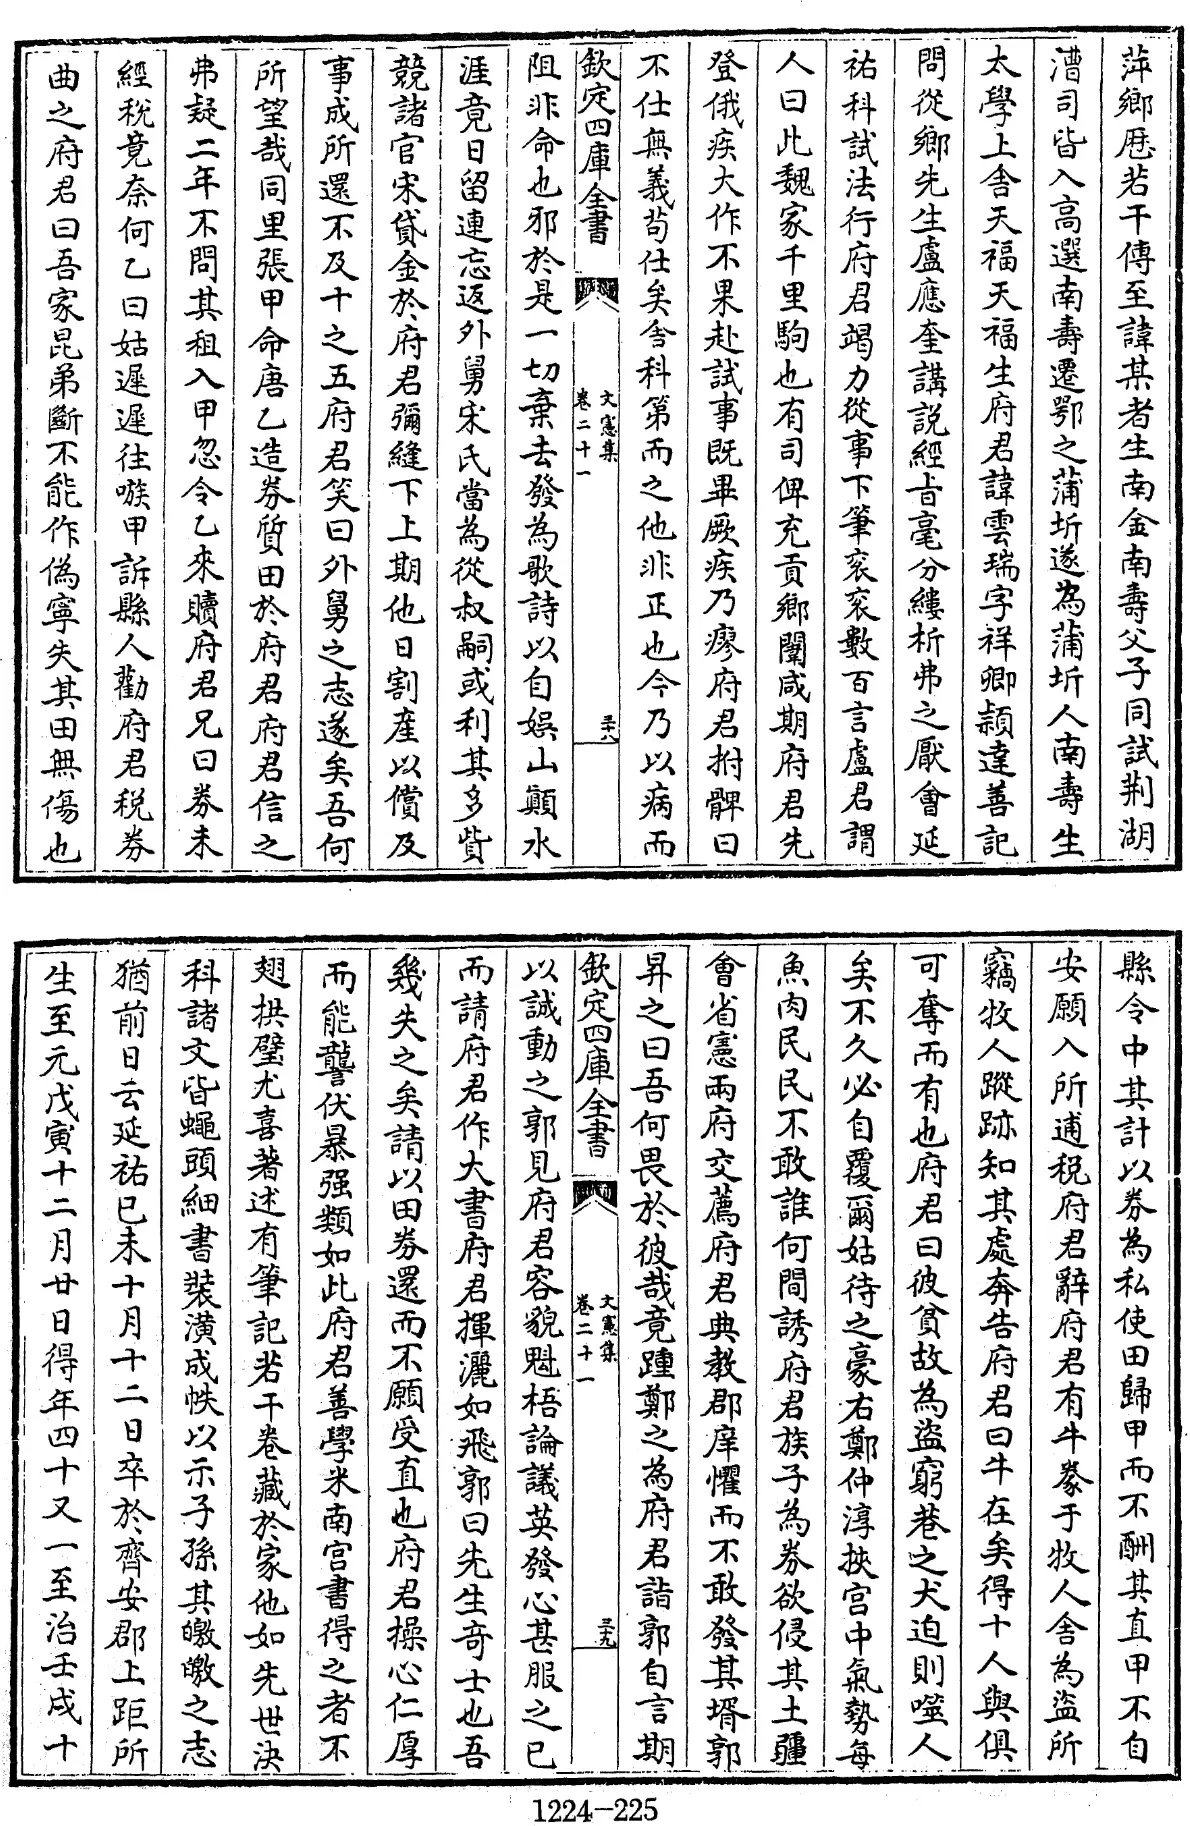 萍鄉厯若干傳至諱某者生南金南壽父子同試荆湖
漕司皆入高選南壽遷鄂之蒲圻遂為蒲圻人南壽生
太學上舎天福天福生府君諱雲瑞字祥卿頴達善記
問從鄉先生盧應奎講説經㫖毫分縷析弗之厭會延
祐科試法行府君竭力從事下筆衮衮數百言盧君謂
人曰此魏家千里駒也有司俾充貢鄉闈咸期府君先
登俄疾大作不果赴試事既畢厥疾乃瘳府君拊髀曰
不仕無義苟仕矣舎科第而之他非正也今乃以病而
欽定四庫全書
文憲集
卷二十一
三十八
阻非命也邪於是一切棄去發為歌詩以自娛山顛水
涯竟日留連忘返外舅宋氏當為從叔嗣或利其多貲
競諸官宋貸金於府君彌縫下上期他日割産以償及
事成所還不及十之五府君笑曰外舅之志遂矣吾何
所望哉同里張甲命唐乙造劵質田於府君府君信之
弗疑二年不問其租入甲忽令乙來贖府君兄曰劵未
經税竟奈何乙曰姑遲遲往嗾甲訴縣人勸府君税劵
曲之府君曰吾家昆弟斷不能作偽寧失其田無傷也
縣令中其計以劵為私使田歸甲而不酬其直甲不自
安願入所逋税府君辭府君有牛豢于牧人舎為盜所
竊牧人蹤跡知其處奔告府君曰牛在矣得十人與俱
可奪而有也府君曰彼貧故為盜窮巷之犬迫則噬人
矣不久必自覆爾姑待之豪右鄭仲淳挾宫中氣勢每
魚肉民民不敢誰何間誘府君族子為劵欲侵其土疆
會省憲兩府交薦府君典教郡庠懼而不敢發其壻郭
昇之曰吾何畏於彼哉竟踵鄭之為府君詣郭自言期
欽定四庫全書
文憲集
卷二十一
三十九
以誠動之郭見府君容貌魁梧論議英發心甚服之已
而請府君作大書府君揮灑如飛郭曰先生奇士也吾
幾失之矣請以田劵還而不願受直也府君操心仁厚
而能讋伏暴强類如此府君善學米南宫書得之者不
翅拱璧尤喜著述有筆記若干卷藏於家他如先世決
科諸文皆蠅頭細書裝潢成帙以示子孫其皦皦之志
猶前日云延祐已未十月十二日卒於齊安郡上距所
生至元戊寅十二月廿日得年四十又一至治壬戌十
1224-225